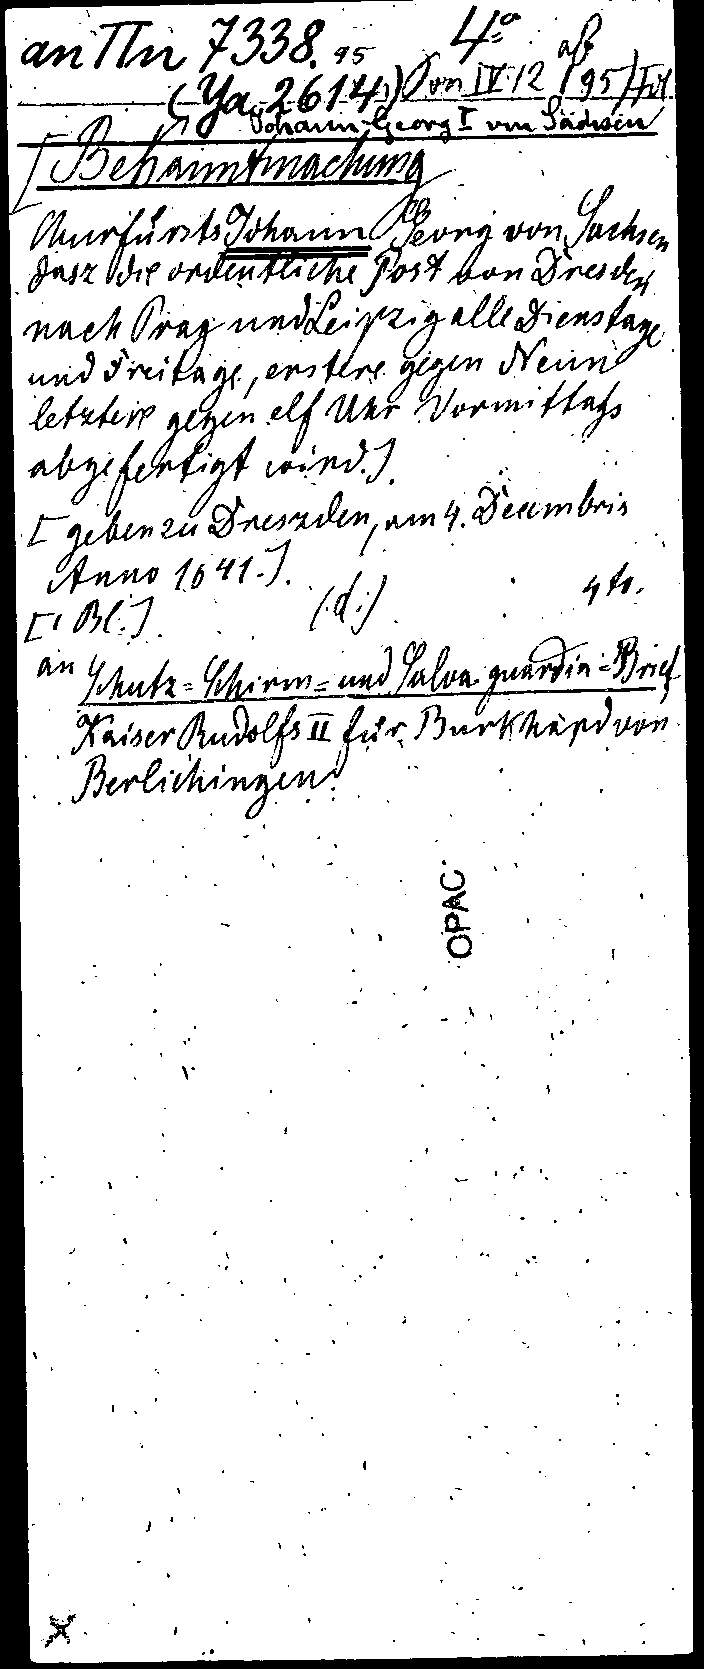 an Πn 7338. 95 4.º
(Ya 2614) Von IV 12 195
Johann Georg I von Sachsen
[Bekanntmachung
Churfürsts Johann Georg von Sachsen
dasz die ordentliche Post von Dresden
nach Prag und Leipzig alle Dienstage
und Freitage, erstere gegen Neun
letztere gegen elf Uhr Vormittags
abgefertigt wird.]
[geben zu Dreszden, am 4. Decembris
Anno 1641.].
[1 Bl.]. (d.) 4to.
an Schutz= Schirm= und Salva guardia=Brief
Kaiser Rudolfs II für Burkhard von
Berlichingen.
OPAC